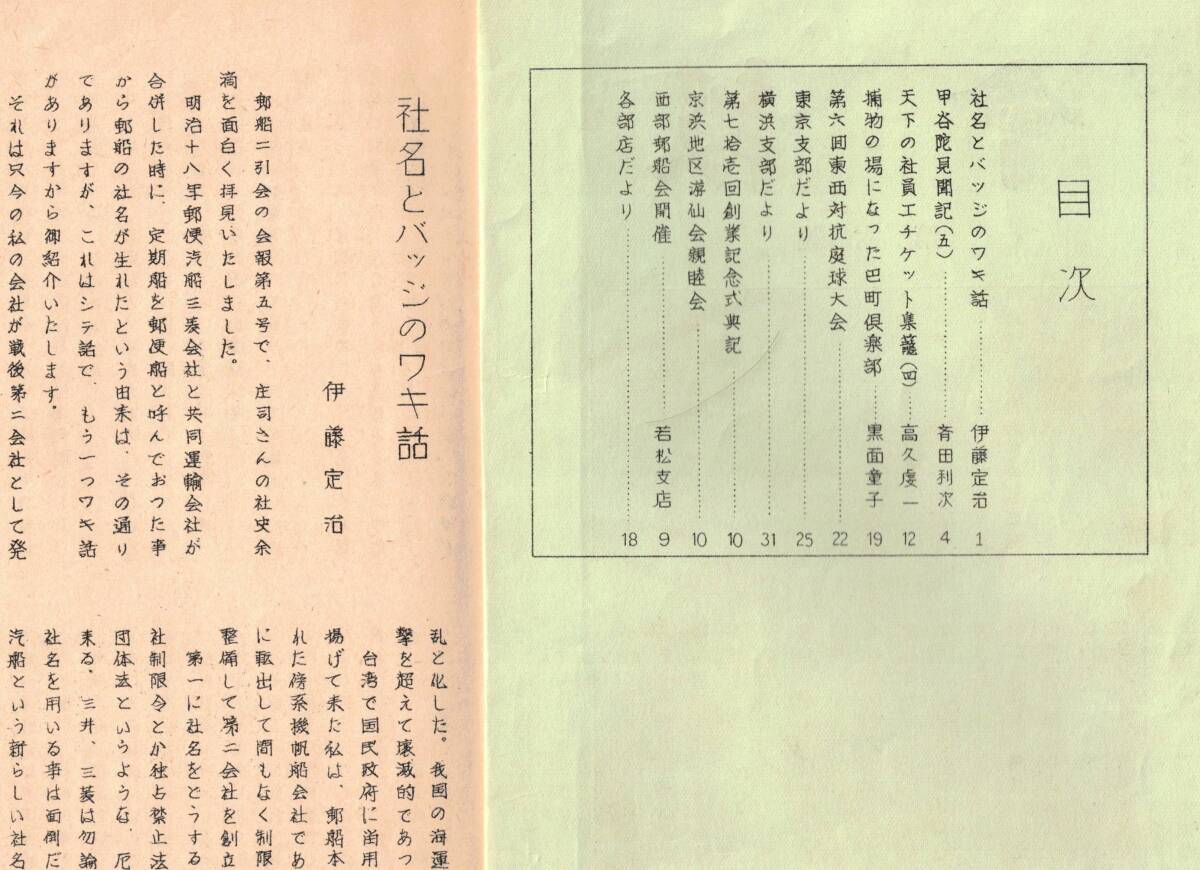 目次
社名とバッジのワキ話……………伊藤定治 1
甲谷陀見聞記(五)……………斉田利次 4
天下の社員エチケット集籠(四)……高久虔一 12
捕物の場になった巴町倶楽部……黒面童子 19
第六回東西対抗庭球大会…………… 22
東京支部だより…………… 25
横浜支部だより…………… 31
第七拾壱回創業記念式典記…………… 10
京浜地区游仙会親睦会…………… 10
西部郵船会開催……………若松支店 9
各部店だより…………… 18
社名とバッジのワキ話
伊藤定治
郵船二引会の会報第五号で、庄司さんの社史余
滴を面白く拝見いたしました。
明治十八年郵便汽船三菱会社と共同運輸会社が
合併した時に、定期船を郵便船と呼んでおつた事
から郵船の社名が生れたという由来は、その通り
でありますが、これはシテ話で、もう一つワキ話
がありますから御紹介いたします。
それは只今の私の会社が戦後第二会社として発
乱と化した。我国の海運
撃を超えて壊滅的であつ
台湾で国民政府に畄用
揚げて来た私は、郵船本
れた傍系機帆船会社であ
に転出して間もなく制限
整備して第二会社を創立
第一に社名をどうする
社制限令とか独占禁止法
団体法というような、厄
来る、三井、三菱は勿論
社名を用いる事は面倒だ
汽船という新らしい社名